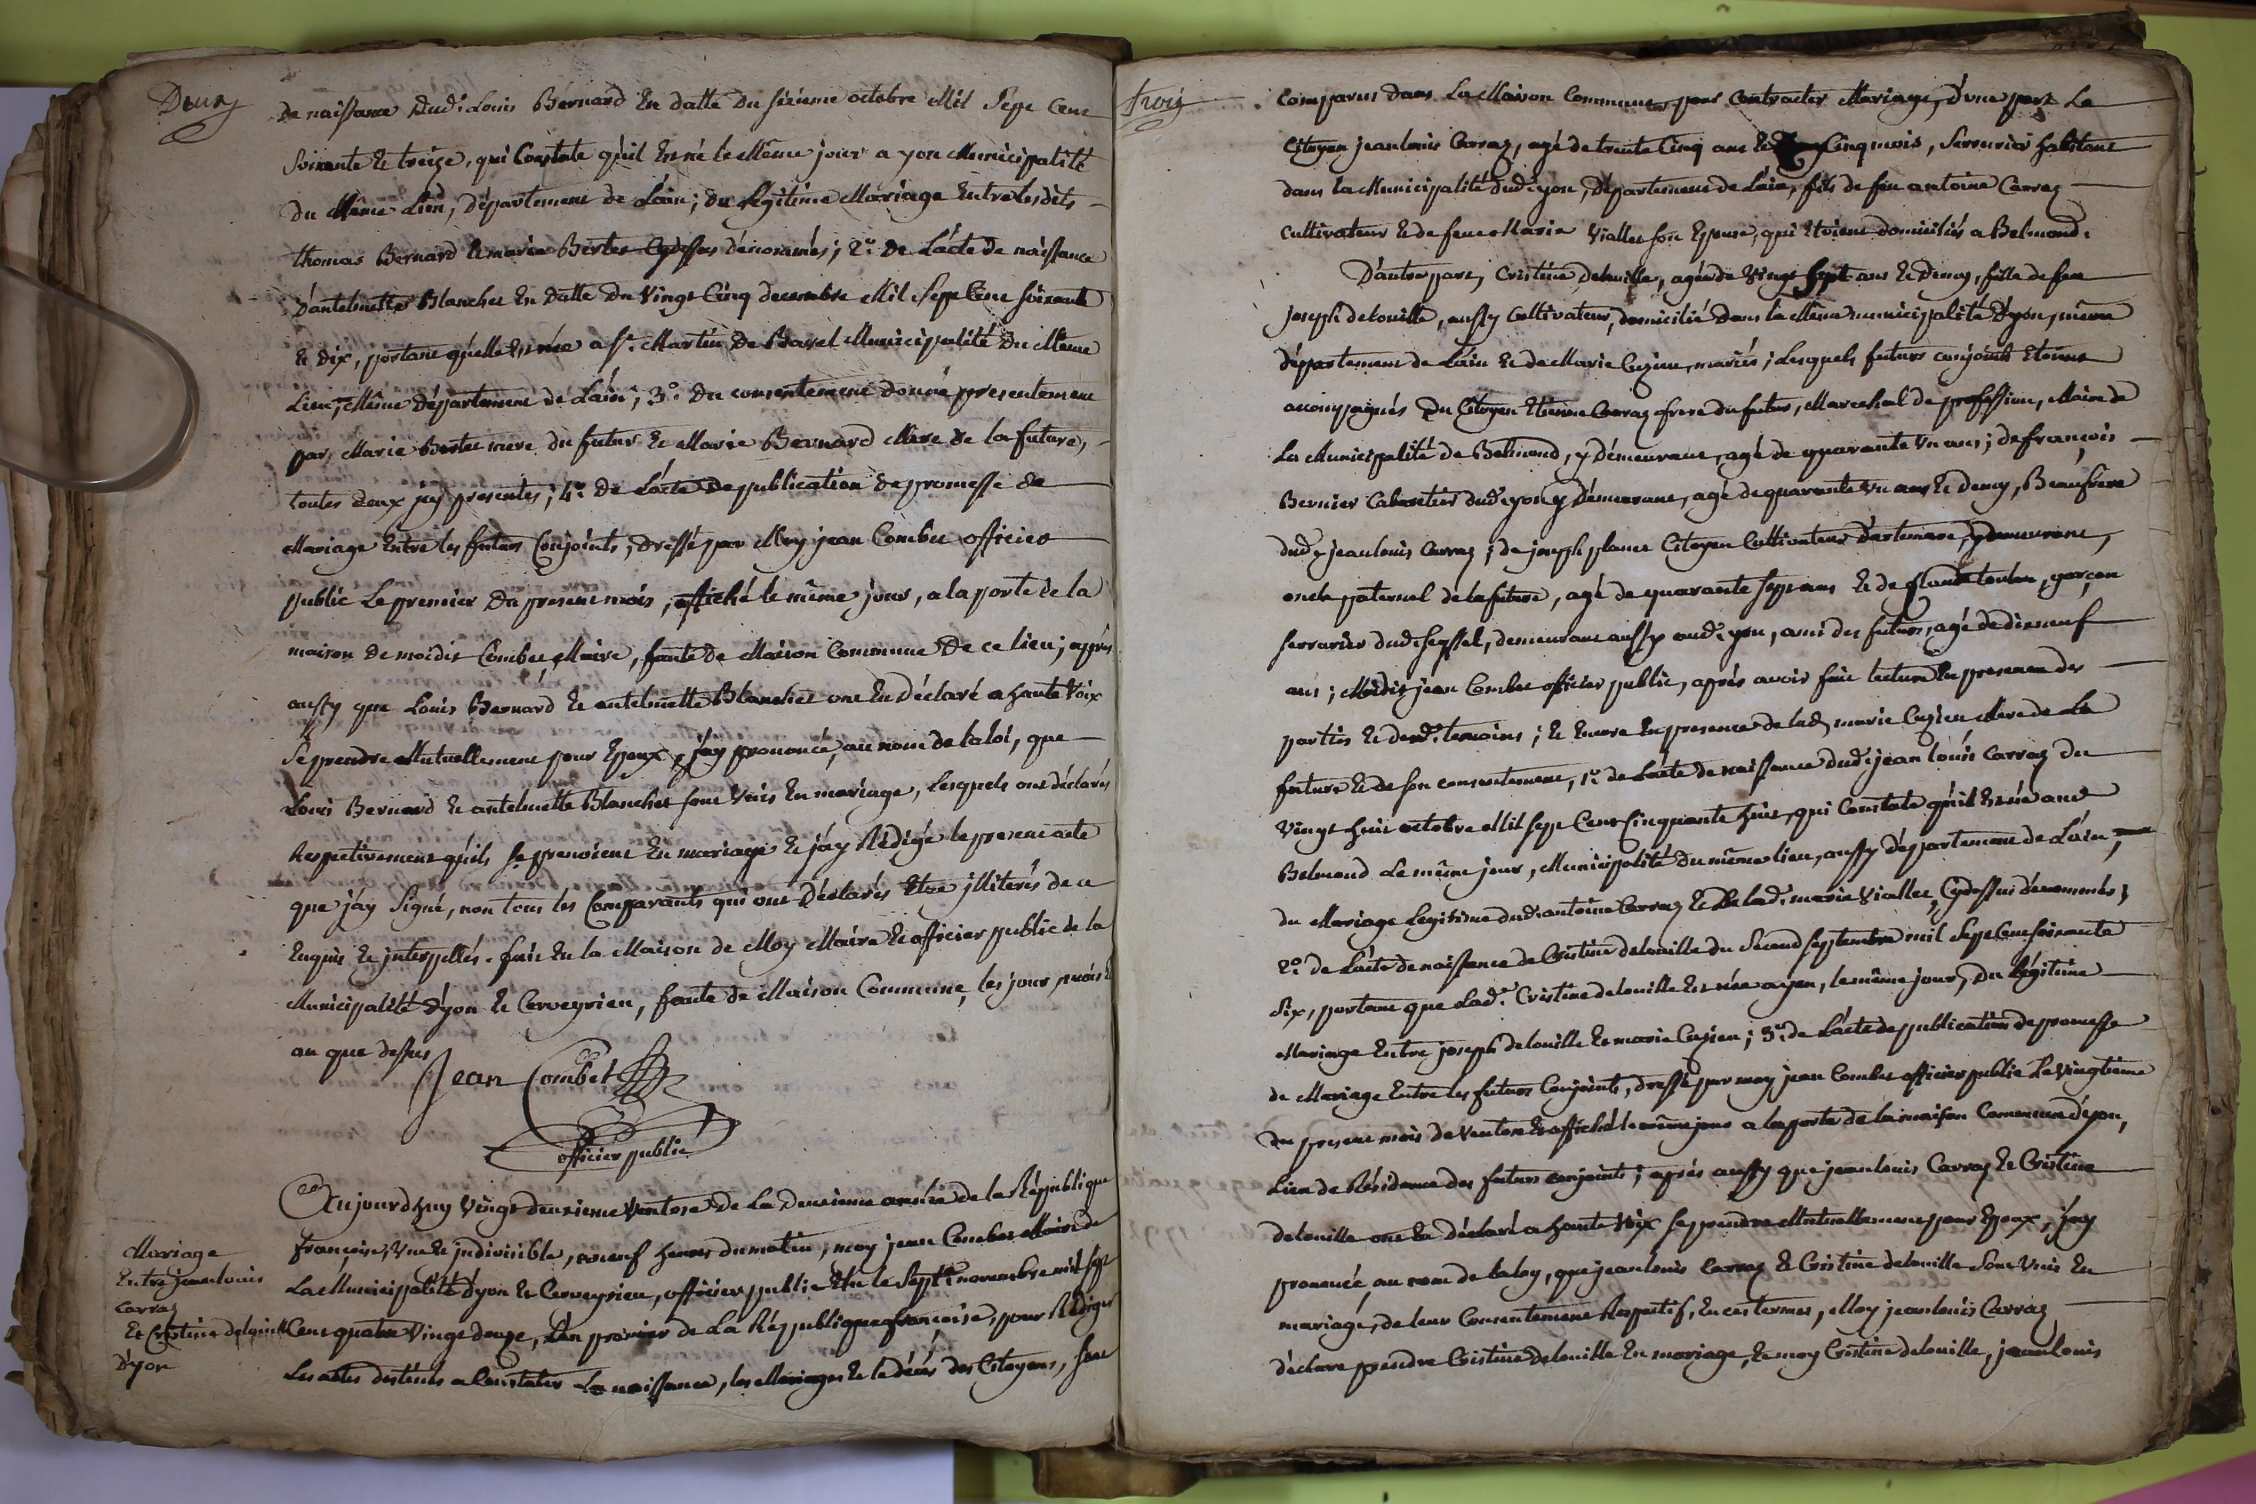 Deux
de naissance dud. Louis Bernard en datte du sixieme octobre Mil Sept Cent
Soixante et treize, qui Constate qu'il est né le Même jour a yon Municipalité
du Même Lieu, département de L'ain; du Légitime Mariage Entre lesdits
thomas Bernard et marie Bertet Cydessus dénommés; 2.° de L'acte de naissance
d'antelmette Blanchet en datte du Vingt Cinq decembre Mil Sept Cent Soixante
et dix, portant qu'elle est née a St. Martin de Bavel Municipalité du Même
Lieu, Même département de L'ain; 3.° du consentement donné presentement
par Marie Bertet mere du futur et Marie Bernard Mere de la future,
toutes deux jcy presentes; 4.° de L'acte de publication de promesse de
Mariage Entre les futurs Conjoints, dressé par Moy jean Combet officier
public Le premier du present mois, affiché le même jour, a la porte de la
maison de moidit Combet Maire, faute de Maison Commune de ce lieu; aprés
aussy que Louis Bernard et antelmette Blanchet ont En déclaré a haute Voix
Se prendre Mutuellement pour Epoux, j'ay prononcé, au nom de la loi, que
Louis Bernard et antelmette Blanchet sont Unis En mariage, Lesquels ont déclarés
Respectivement qu'ils se prenoient En mariage et j'ay Rédigé le present acte
que j'ay Signé, non tous les Comparants qui ont Déclarés Etre jlliterés de ce
Enquis et jnterpellés. fait En la Maison de Moy Maire et officier public de la
Municipalité d'yon et Cerveyrieu, faute de Maison Commune, les jour, mois et
an que dessus
Jean Combet
officier public
Mariage
Entre jean louis
Carraz
Et Cristine delouille
D'yon
Aujourdhuy Vingt deuxieme Ventose de La deuxieme année de la République
françoise, Une et jndivisible, a neuf heures du matin, moy jean Combet Maire de
La Municipalité d'yon et Cerveyrieu, officier public Elu le Sept novembre mil sept
Cent quatre Vingt douze, L'an premier de La République françoise, pour Rédiger
Les actes destinés a Constater La naissance, les Mariages et le décés des Citoyens, sont
trois
Comparus dans La Maison Commune pour Contracter Mariage, d'une part Le
Citoyen jean louis Carraz, agé de trente Cinq ans et Cinq mois, Serrurier habitant
dans la Municipalité dud. yon, département de Lain, fils de feu antoine Carraz
Cultivateur et de feue Marie Viallet son Epouse, qui Etoient domiciliés a Belmond.
D'autre part, Cristine delouille, agée de Vingt Sept ans et Demy, fille de feu
joseph delouille, aussy Cultivateur, domicilié Dans la Même municipalité d'yon, même
département de Lain et de Marie Cuzien, mariés; Lesquels futurs conjoints Etoient
accompagnés du Citoyen Etienne Carraz frere du futur, Marechal de profession, Maire de
La Municipalité de Belmond, y Démeurant, agé de quarante Un ans; de françois
Bernier Cabaretier dud. yon y Démeurant, agé de quarante Un ans et demy, Beaufrere
dud. jean louis Carraz; de joseph Citoyen Cultivateur d'artemare, y demeurant,
oncle paternel de la future, agé de quarante sept ans et de garçon
serrurier dud. Seyssel, demeurant aussy aud. yon, ami des futurs, agé de dix neuf
ans; Moidit jean Combet officier public, aprés avoir fait lecture En presence des
parties et desd. temoins; et Encore En presence de lad. marie Cuzien Mere de La
future et de son consentement, 1.° de L'acte de naissance dud. jean louis Carraz du
Vingt huit octobre Mil Sept Cent Cinquante huit, qui Constate qu'il est né aud.
Belmond Le même jour, Municipalité du même lieu, aussy département de L'ain,
du Mariage Legitime dud. antoine Carraz et de lad. marie Viallet, Cydessus dénommés;
2.° de L'acte de naissance de Cristine delouille du Second Septembre mil Sept Cent Soixante
Six, portant que Lad. Cristine delouille est née a yon, le même jour, Du Légitime
Mariage Entre joseph delouille et marie Cuzien; 3.° de L'acte de publication de promesse
de Mariage Entre les futurs Conjoints, dressé par moy jean Combet officier public Le Vingtieme
du present mois de Ventose et affiché le même jour a la porte de la maison Commune d'yon,
Lieu de Résidence des futurs conjoints; aprés aussy que jean louis Carraz et Cristine
delouille ont En déclaré a haute Voix se prendre Mutuellement pour Epoux, j'ay
prononcé, au nom de la loy, que jean louis Carraz et Cristine delouille Sont Unis En
mariage, de leur Consentement Respectif, En ces termes, Moy jean louis Carraz
déclare prendre Cristine delouille En mariage, et moy Cristine delouille, jean louis